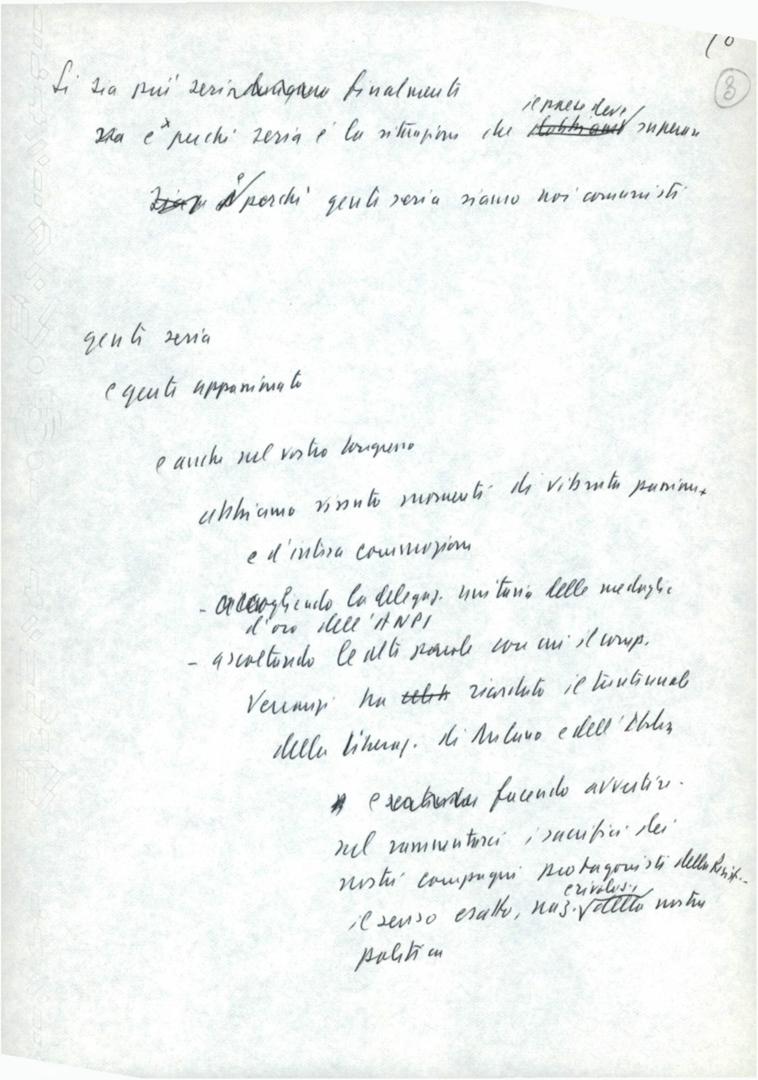 10
8
Si sia più seri finalmente
sia perché seria è la situazione che il paese deve superare
perché gente seria siamo noi comunisti
gente seria
e gente appassionata
e anche nel vostro congresso
abbiamo vissuto momenti di vibrata passione
e d'intesa commozione
- accogliendo la delegaz. unitaria delle medaglie
d'oro dell'ANPI
- ascoltando le alte parole con cui il comp.
ha ricordato il trentennale
della Liberaz. di Milano e dell'Italia
e facendo avvertire
nel rammentarci i sacrifici dei
nostri compagni protagonisti della Resist.
il senso esatto, naz. e rivoluz. della nostra
politica